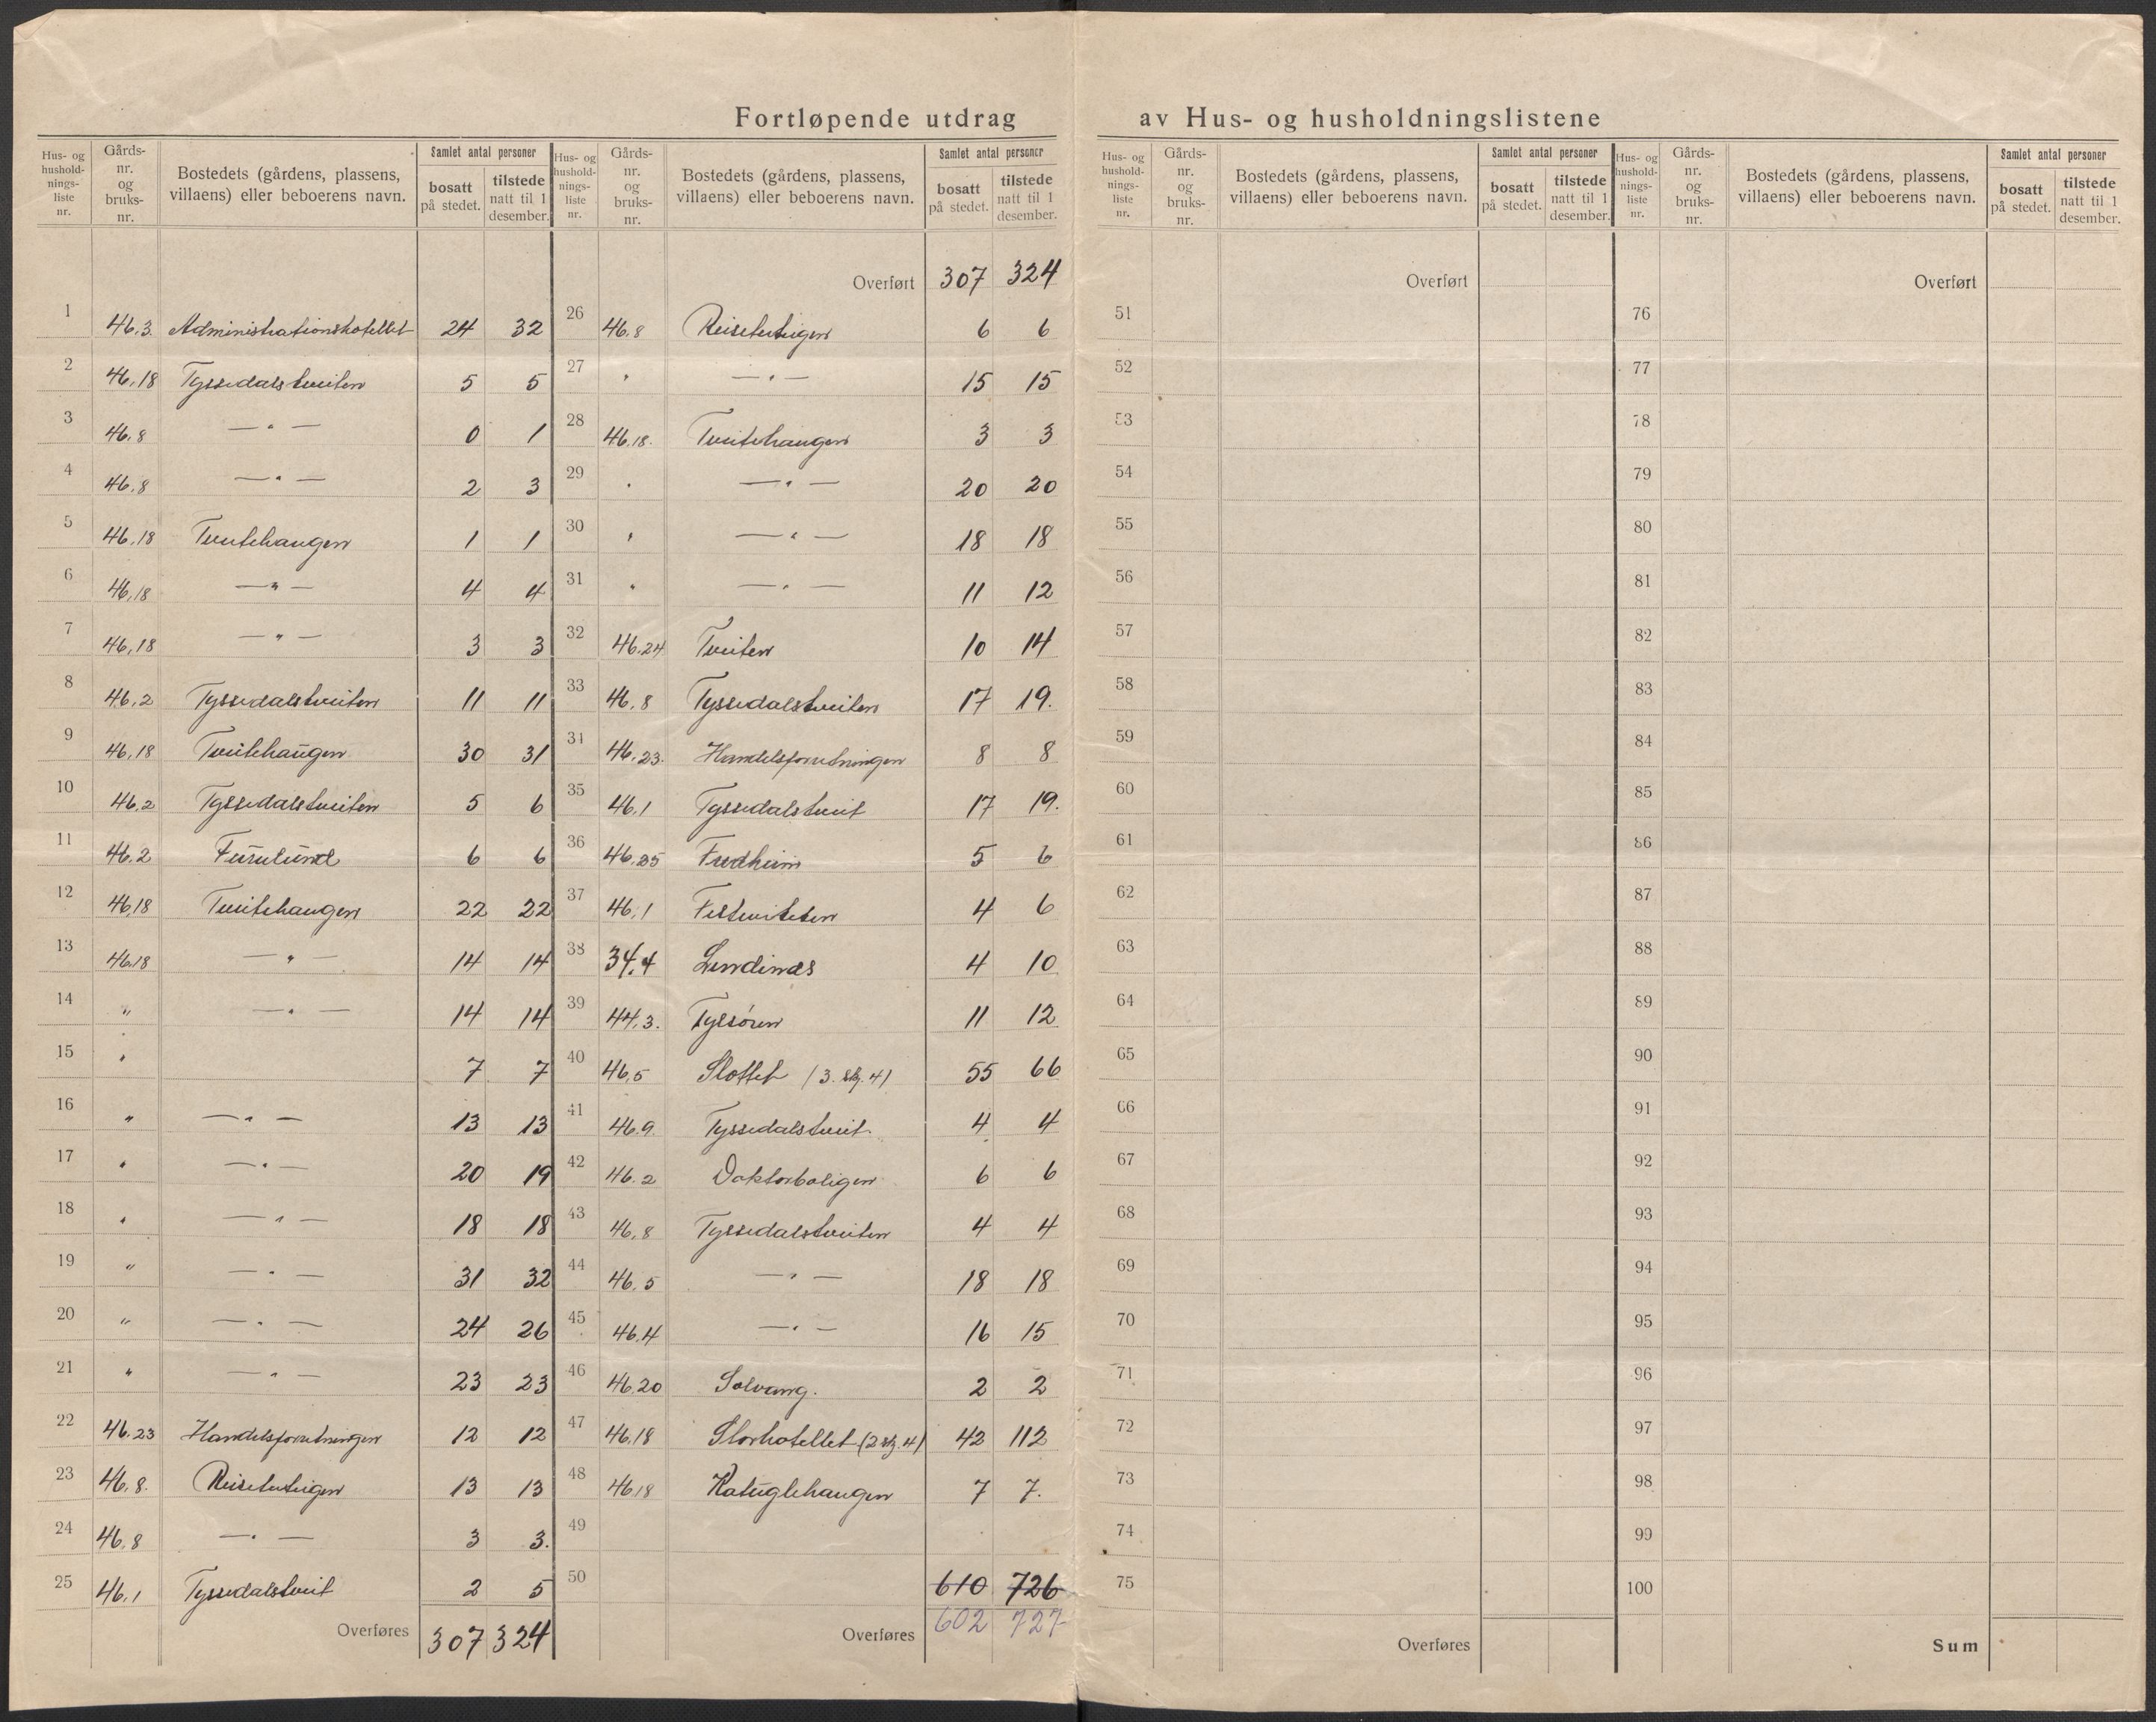 Fortløpende utdrag av Hus- og husholdningslistene
Hus- og husholdnings-liste nr. | Gårds-nr. og bruks-nr. | Bostedets (gårdens, plassens, villaens) eller beboerens navn. | Samlet antal personer | bosatt på stedet. | tilstede natt til 1 desember.
1 46.3. Administrationshotellet 24 32
2 46,18 Tyssedalstveiten 5 5
3 46.8 — " — 0 1
4 46.8 — " — 2 3
5 46.18 Tveitehaugen 1 1
6 46,18 — " — 4 4
7 46,18 — " — 3 3
8 46.2 Tyssedalstveiten 11 11
9 46,18 Tveitehaugen 30 31
10 46.2 Tyssedalstveiten 5 6
11 46.2 Furulund 6 6
12 46,18 Tveitehaugen 22 22
13 46.18 — " — 14 14
14 " — " — 14 14
15 " 7 7
16 " — " — 13 13
17 " — " — 20 19
18 " — " — 18 18
19 " — " — 31 32
20 " — " — 24 26
21 " — " — 23 23
22 46.23 Handelsforretningen 12 12
23 46.8. 13 13
24 46.8 — " — 3 3.
25 46.1 Tyssedalstveit 2 5
Overføres 307 324
Hus- og husholdnings-liste nr. | Gårds-nr. og bruks-nr. | Bostedets (gårdens, plassens, villaens) eller beboerens navn. | Samlet antal personer | bosatt på stedet. | tilstede natt til 1 desember.
Overført 307 324
26 46.8 6 6
27 " — " — 15 15
28 46.18. Tveitehaugen 3 3
29 " — " — 20 20
30 " — " — 18 18
31 " — " — 11 12
32 46.24 Tveiten 10 14
33 46.8 Tyssedalstveiten 17 19.
34 46.23. Handelsforretningen 8 8
35 46.1 Tyssedalstveit 17 19.
36 46.25 Fredheim 5 6
37 46.1 Festiviteten 4 6
38 34.4 Lindenes 4 10
39 44.3. Tyssøren 11 12
40 46.5 Slottet (3. etg. 4) 55 66
41 46.9. Tyssedalstveit 4 4
42 46.2 Doktorboligen 6 6
43 46.8 Tyssedalstveiten 4 4
44 46.5 — " — 18 18
45 46.4 — " — 16 15
46 46.20 Solvang. 2 2
47 46.18 Storhotellet (2 etg. 4) 42 112
48 46.18 Katuglehaugen 7 7.
49
50 610 726
Overføres 602 727
Hus- og husholdnings-liste nr. | Gårds-nr. og bruks-nr. | Bostedets (gårdens, plassens, villaens) eller beboerens navn. | Samlet antal personer | bosatt på stedet. | tilstede natt til 1 desember.
Overført
51
52
53
54
55
56
57
58
59
60
61
62
63
64
65
66
67
68
69
70
71
72
73
74
75
Overføres
Hus- og husholdnings-liste nr. | Gårds-nr. og bruks-nr. | Bostedets (gårdens, plassens, villaens) eller beboerens navn. | Samlet antal personer | bosatt på stedet. | tilstede natt til 1 desember.
Overført
76
77
78
79
80
81
82
83
84
85
86
87
88
89
90
91
92
93
94
95
96
97
98
99
100
Sum